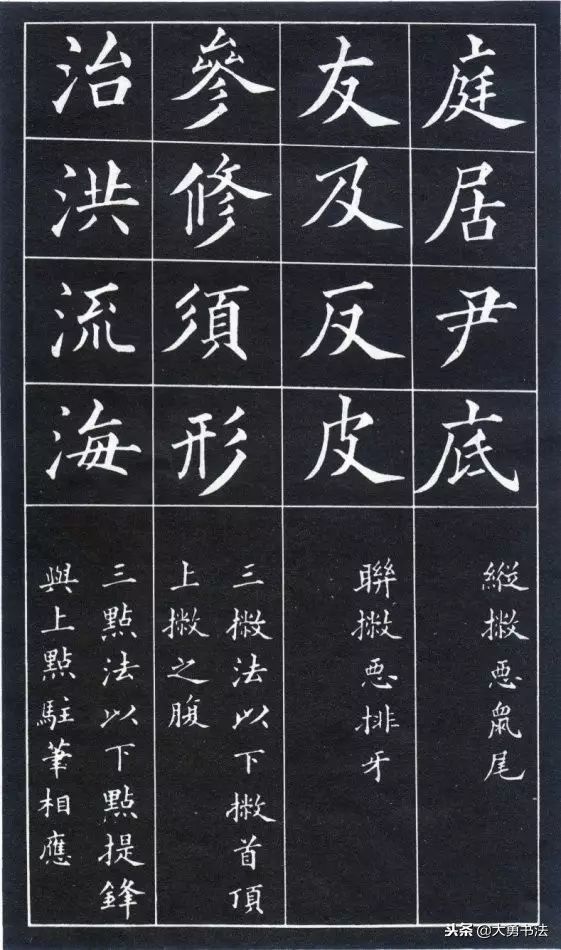 庭居尹底
縱撇惡鼠尾
友及反皮
聯撇惡排牙
參修須形
三撇法以下撇首頂
上撇之腹
治洪流海
三點法以下點提鋒
與上點駐筆相應
头条 @大勇书法